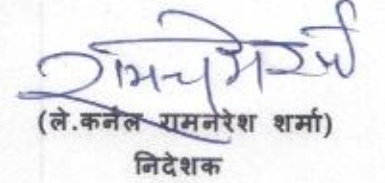 (ले.कर्नल रामनरेश शर्मा)
निदेशक